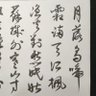 月落烏啼
霜滿天江楓
漁火對愁眠姑
蘇城外寒